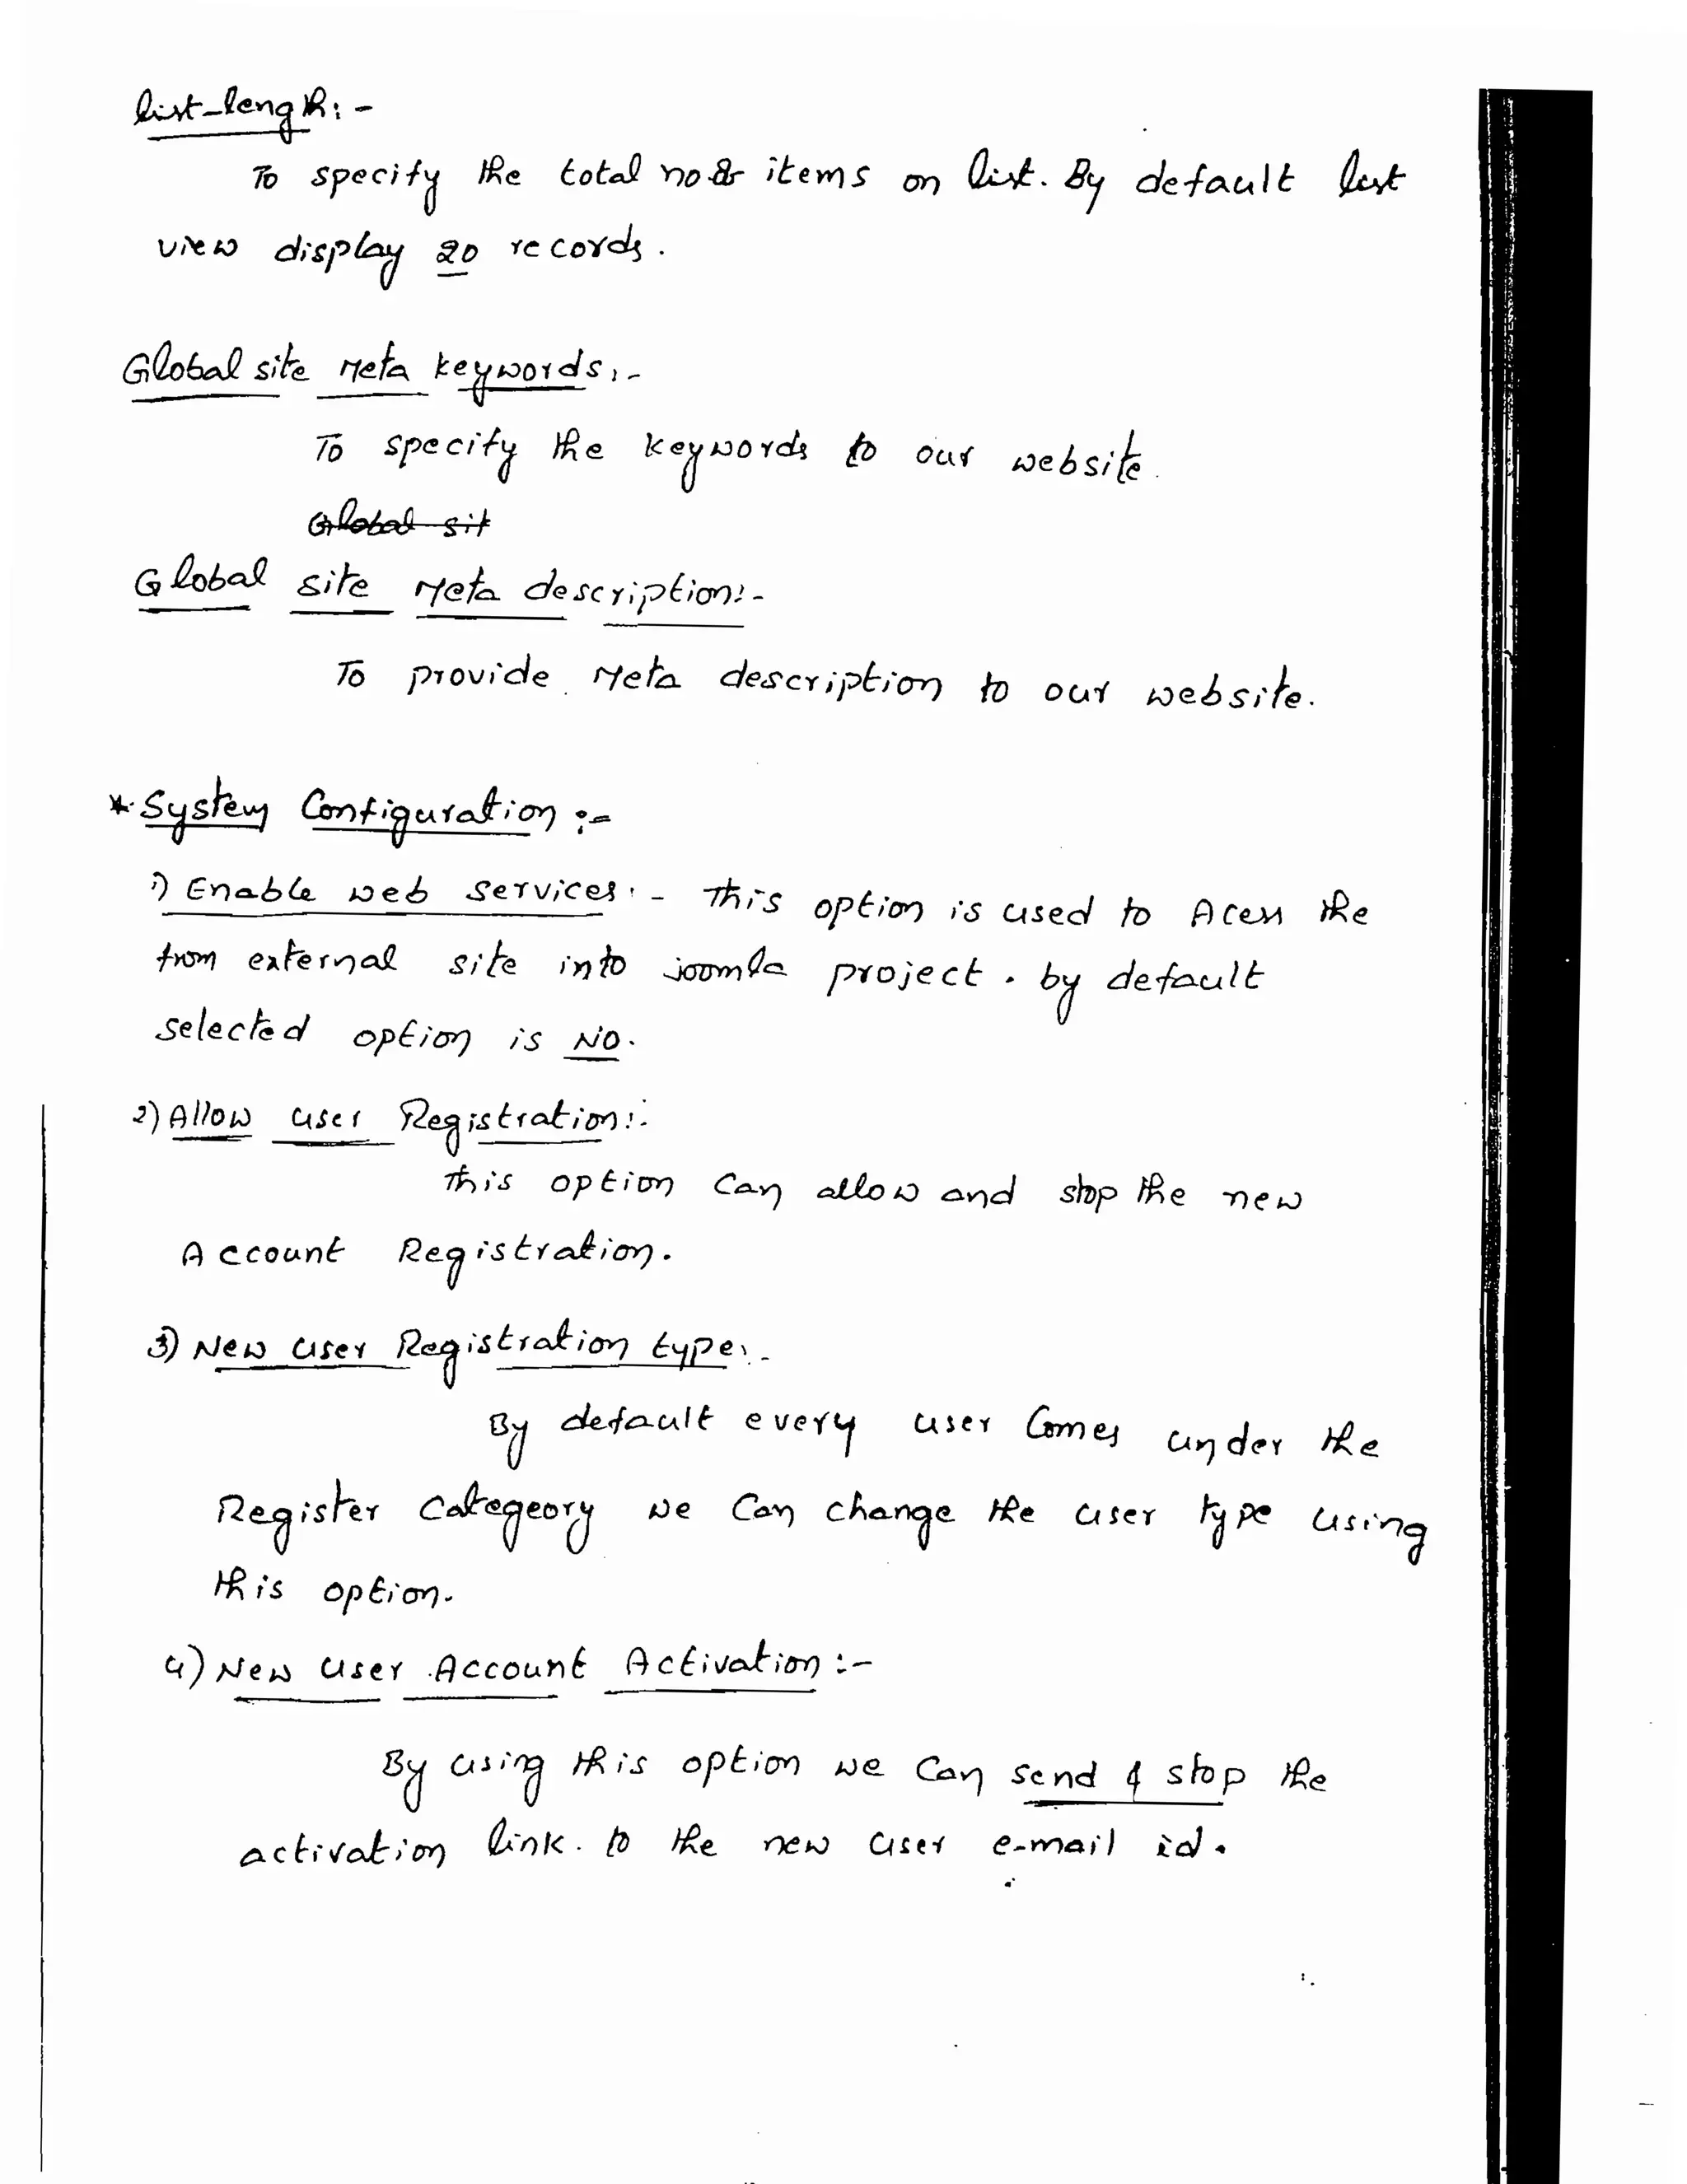 list-length:-
To specify the total no.of items on list. By default list
view display 20 records.
Global site Meta keywords:-
To specify the keywords to our website.
Global sit
Global site Meta description:-
To provide Meta description to our website.
* System Configuration :-
1) Enable web services:- This option is used to Acess the
from external site into joomla project. by default
selected option is NO.
2) Allow user Registration:-
This option can allow and stop the new
Account Registration.
3) New user Registration type:-
By default every user Comes under the
Register Categeory we Can change the user type using
this option.
4) New user Account Activation :-
By using this option we Can send & stop the
activation link. to the new user e-mail id.